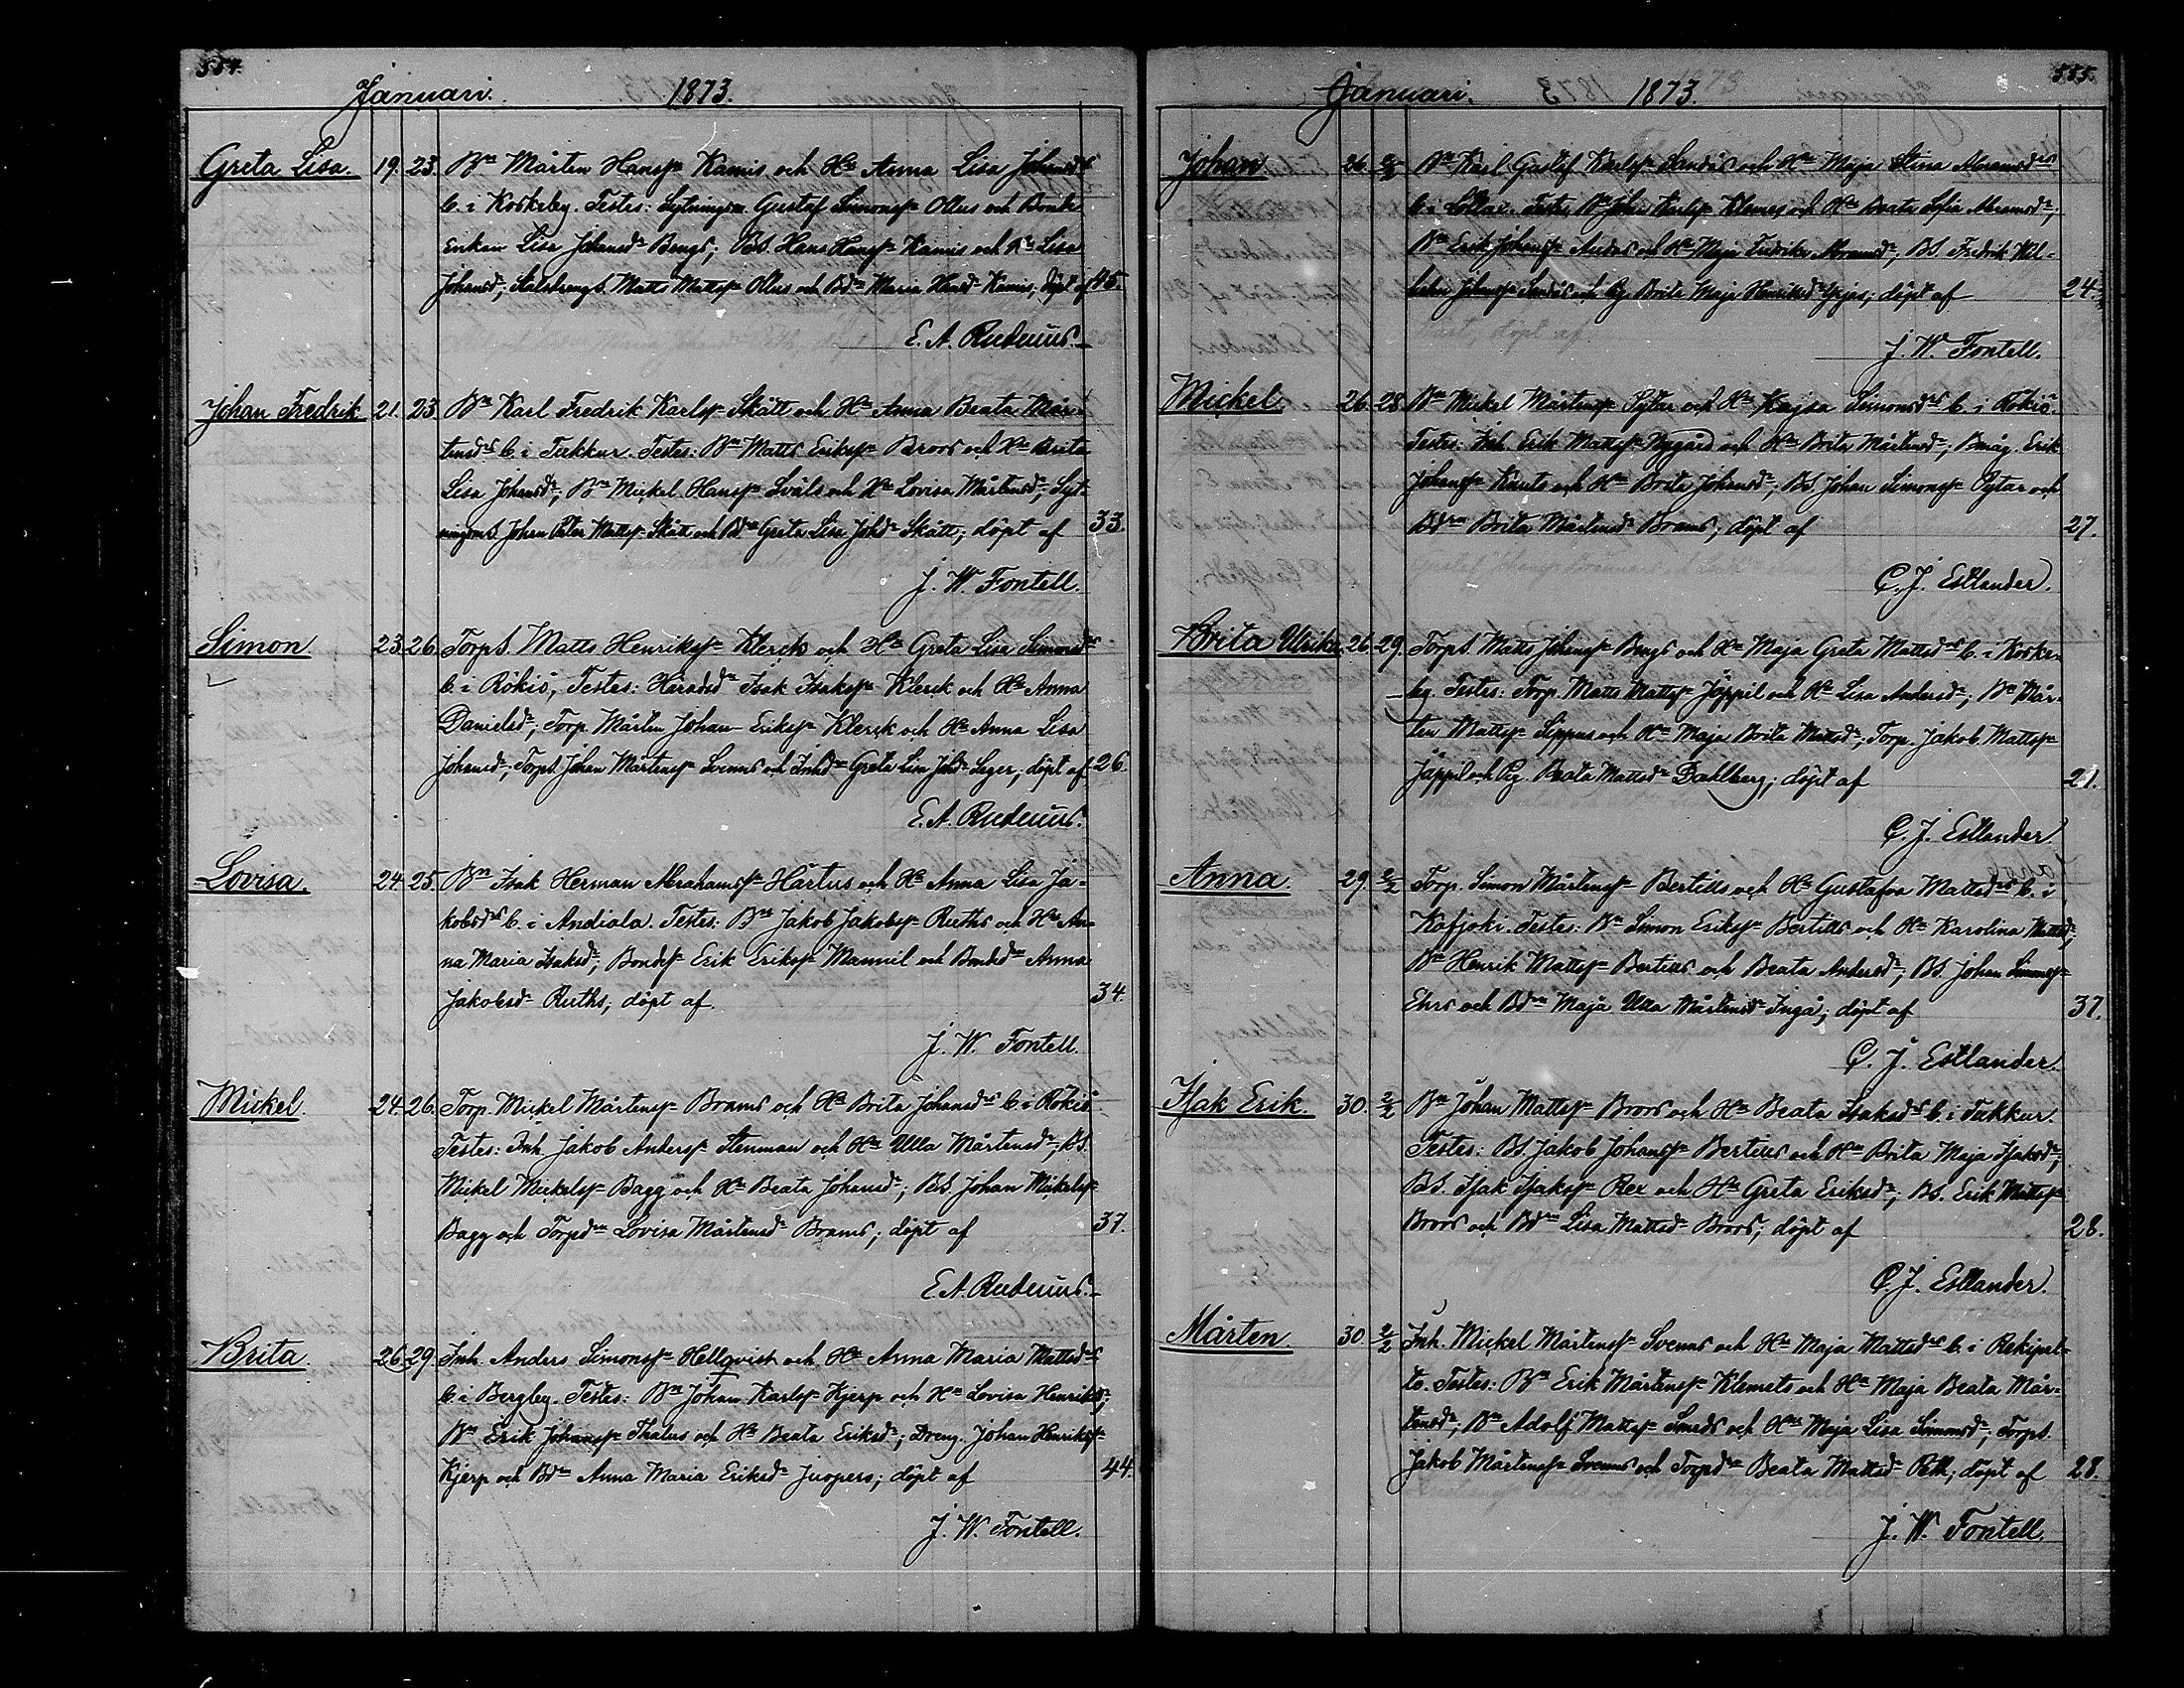 554.
Januari. 1873.
Greta Lisa. 19. 23. Bn Mårten Hanss. Kamis och Ha Anna Lisa Johansdr
b. i Korkeby. Testes: Sytningsm. Gustaf Simonss. Ollus och Bonde-
Enkan Lisa Johansdr Bengs; BS. Hans Hanss. Kamis och Ha Lisa
Johansdr; Matts Mattss. Ollus och Bdn Maria Hansdr Kamis; döpt af 45.
E. A. Rudenius.
Johan Fredrik 21. 23. Bn Karl Fredrik Karlss. Skått och Ha Anna Beata Mår-
tensdr b. i Tukkur. Testes: Bn Matts Erikss. Brors och Ha Brita
Lisa Johansdr; Bn Mickel Hanss. Svåls och Ha Lovisa Mårtensdr; Syt-
ningsmS. Johan Peter Mattss. Skått och Bdn Greta Lisa Johdr Skått; döpt af 33.
J. W. Fontell.
Simon 23. 26. TorpS. Matts Henrikss. Klerck och Ha Greta Lisa Simonsdr
b. i Rökiö, Testes: Isak Isakss. Klerck och Ha Anna
Danielsdr; Torp. Mårten Johan Erikss. Klerck och Ha Anna Lisa
Johansdr; TorpS. Johan Mårtenss. Svenns och Inhdn Greta Lisa Johdr Seger; döpt af 26.
E. A. Rudenius.
Lovisa. 24. 25. Bn Isak Herman Abrahamss. Hartus och Ha Anna Lisa Ja-
kobsdr b. i Andiala. Testes: Bn Jakob Jakobss. Ruths och Ha An-
na Maria Isaksdr; Bondes. Erik Erikss. Manniel och Bondedn Anna
Jakobsdr Ruths; döpt af 34.
J. W. Fontell.
Mickel. 24. 26. Torp. Mickel Mårtenss. Brams och Ha Brita Johansdr b. i Rökiö.
Testes: Inh. Jakob Anderss. Stenman och Ha Ulla Mårtensdr; BS.
Mickel Mickelss. Bagg och Ha Beata Johansdr; BS. Johan Mickelss.
Bagg och Torpdn Lovisa Mårtensdr Brams; döpt af 37.
E. A. Rudenius.
Brita. 26. 29. Inh. Anders Simonss. Hellqvist och Ha Anna Maria Mattsdr
b. i Bergby. Testes: Bn Johan Karlss. Kjerp och Ha Lovisa Henriksdr;
Bn Erik Johanss. Thalus och Ha Beata Eriksdr; Dreng. Johan Henrikss.
Kjerp och Bdn Anna Maria Eriksdr Juopers; döpt af 44.
J. W. Fontell.
555.
Januari. 1873.
Johan 26. 2/2 Bn Karl Gustaf Karlss. Sandås och Ha Maja Stina Abramsdr
b. i Lollax. Testes: Bn Johan Karlss. Klemes och Ha Beata Sofia Abramsdr;
Bn Erik Johanss. Anders och Ha Maja Fredrika Abramsdr; BS. Fredrik Wil-
helm Johanss. Sandås och Pig. Brita Maja Henriksdr; döpt af 24.
J. W. Fontell.
Mickel 26. 28. Bn Mickel Mårtenss. Pytar och Ha Kajsa Simonsdr b. i Rökiö.
Testes: Inh. Erik Mattss. Nygård och Ha Brita Mårtensdr; Bmåg. Erik
Johanss. Knuts och Ha Brita Johansdr; BS. Johan Simonss. Pytar och
Bdn Brita Mårtensdr Brams; döpt af 27.
C. J. Estlander.
Brita Ulrika 26. 29. TorpS. Matts Johanss. Bengs och Ha Maja Greta Mattsdr b. i Korke-
by. Testes: Torp. Matts Mattss. Jåppil och Ha Lisa Andersdr; Bn Mår-
ten Mattss. Sippus och Ha Maja Brita Mattsdr; Torp. Jakob Mattss.
Jåppil och Pig. Beata Mattsdr Dahlberg; döpt af 21.
C. J. Estlander
Anna. 29. 2/2 Torp. Simon Mårtenss. Bertills och Ha Gustafva Mattsdr b. i
Kafjoki. Testes: Bn Simon Erikss. Bertills och Ha Karolina Mattsdr;
Bn Henrik Mattss. Bertills och Beata Andersdr; BS. Johan Simonss.
Ehrs och Bdn Maja Ulla Mårtensdr Ingå; döpt af 37.
C. J. Estlander.
Isak Erik. 30. 2/2 Bn Johan Mattss. Brors och Ha Beata Isaksdr b. i Tukkur.
Testes: BS. Jakob Johanss. Bertills och Ha Brita Maja Isaksdr;
BS. Isak Isakss. Rex och Ha Greta Eriksdr; BS. Erik Mattss.
Brors och Bdn Lisa Mattsdr Brors; döpt af 28.
C. J. Estlander.
Mårten. 30. 2/2 Inh. Mickel Mårtenss. Svenns och Ha Maja Mattsdr b. i Rekipel-
to. Testes: Bn Erik Mårtenss. Klemets och Ha Maja Beata Mår-
tensdr; Bn Adolf Mattss. Smeds och Ha Maja Lisa Simonsdr; TorpS.
Jakob Mårtenss. Svenns och Torpdn Beata Mattsdr Reth; döpt af 28.
J. W. Fontell.